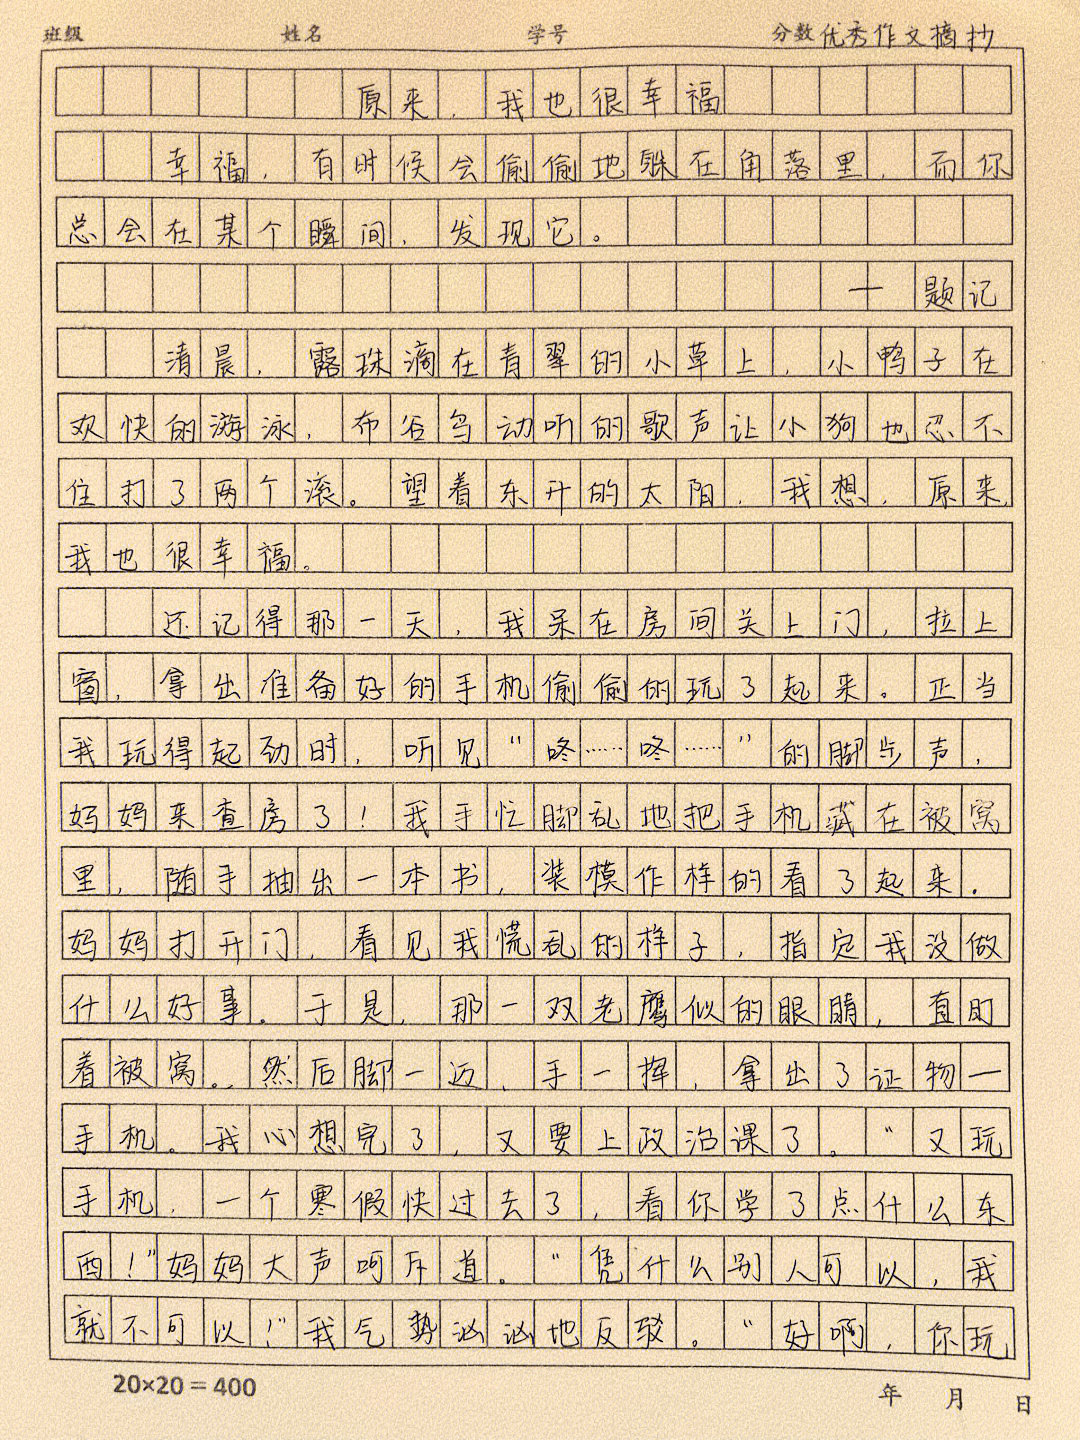 班级 姓名 学号 分数 优秀作文摘抄
原来，我也很幸福
幸福，有时候会偷偷地躲在角落里，而你
总会在某个瞬间，发现它。
一题记
清晨，露珠滴在青翠的小草上，小鸭子在
欢快的游泳，布谷鸟动听的歌声让小狗也忍不
住打了两个滚。望着东升的太阳，我想，原来，
我也很幸福。
还记得那一天，我呆在房间关上门，拉上
窗，拿出准备好的手机偷偷的玩了起来。正当
我玩得起劲时，听见“咚……咚……”的脚步声，
妈妈来查房了！我手忙脚乱地把手机藏在被窝
里，随手抽出一本书，装模作样的看了起来．
妈妈打开门，看见我慌乱的样子，指定我没做
什么好事。于是，那一双老鹰似的眼睛，直盯
着被窝。．然后脚一迈，手一挥，拿出了证物一
手机。我心想完了，又要上政治课了。“又玩
手机，一个寒假快过去了，看你学了点什么东
西！”妈妈大声呵斥道。“凭什么别人可以，我
就不可以！”我气势汹汹地反驳。“好啊，你玩
20×20＝400 年 月 日